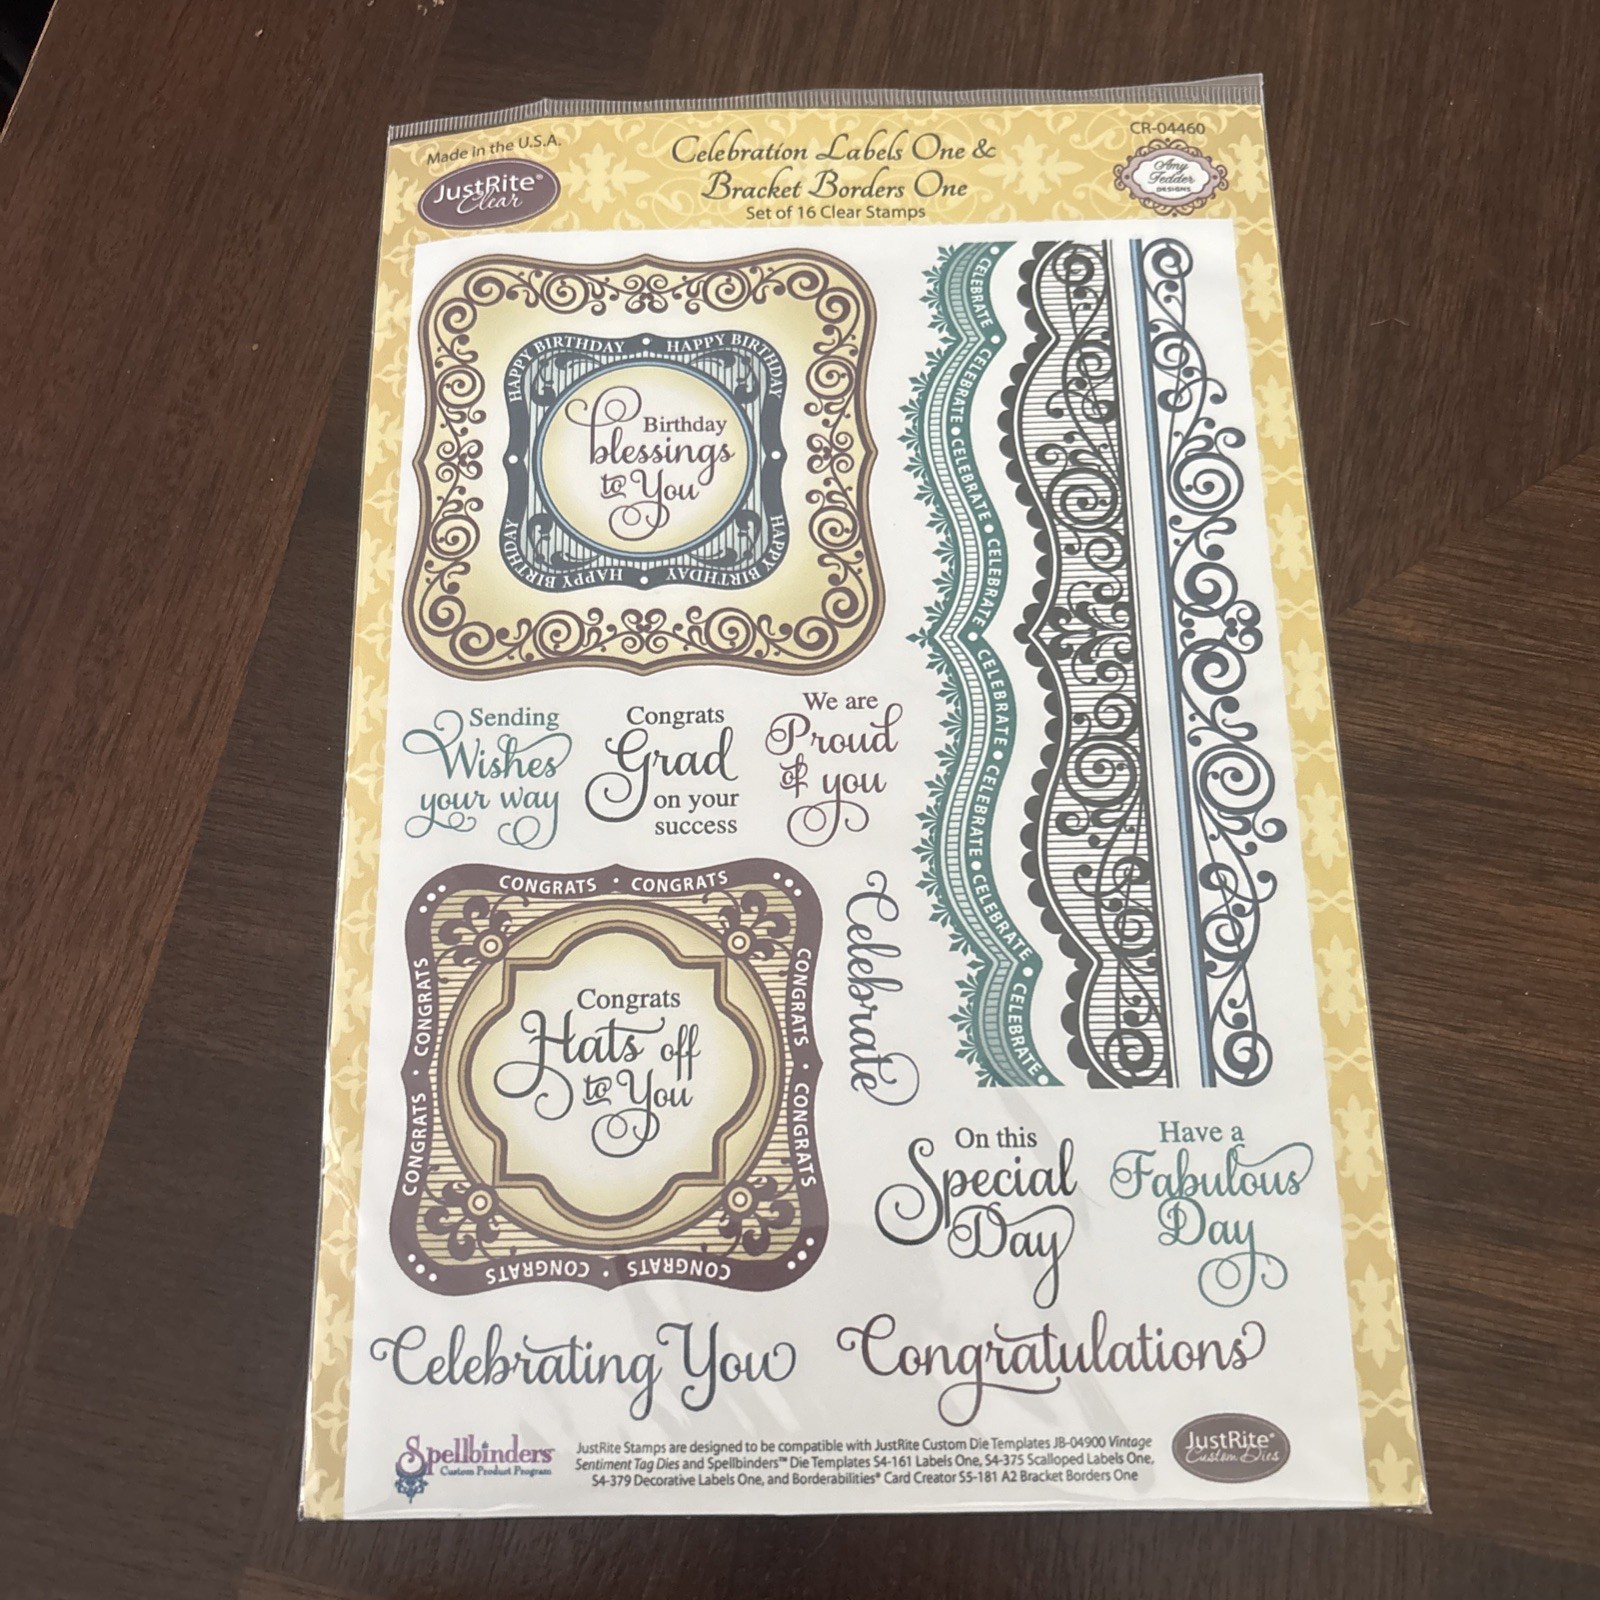 Made in the U.S.A.
JustRite®
Clear
Celebration Labels One &
Bracket Borders One
Set of 16 Clear Stamps
CR-04460
Amy
Tedder
DESIGNS
HAPPY BIRTHDAY • HAPPY BIRTHDAY
HAPPY BIRTHDAY
HAPPY BIRTHDAY
HAPPY BIRTHDAY • HAPPY BIRTHDAY
HAPPY BIRTHDAY
HAPPY BIRTHDAY
Birthday
blessings
to You
CELEBRATE • CELEBRATE • CELEBRATE • CELEBRATE • CELEBRATE • CELEBRATE • CELEBRATE • CELEBRATE
Sending
Wishes
your way
Congrats
Grad
on your
success
We are
Proud
of you
CONGRATS • CONGRATS
CONGRATS • CONGRATS
CONGRATS • CONGRATS
CONGRATS • CONGRATS
Congrats
Hats off
to You
Celebrate
On this
Special
Day
Have a
Fabulous
Day
Celebrating You
Congratulations
Spellbinders
Custom Product Program
JustRite Stamps are designed to be compatible with JustRite Custom Die Templates JB-04900 Vintage
Sentiment Tag Dies and Spellbinders™ Die Templates S4-161 Labels One, S4-375 Scalloped Labels One,
S4-379 Decorative Labels One, and Borderabilities® Card Creator S5-181 A2 Bracket Borders One
JustRite®
Custom Dies